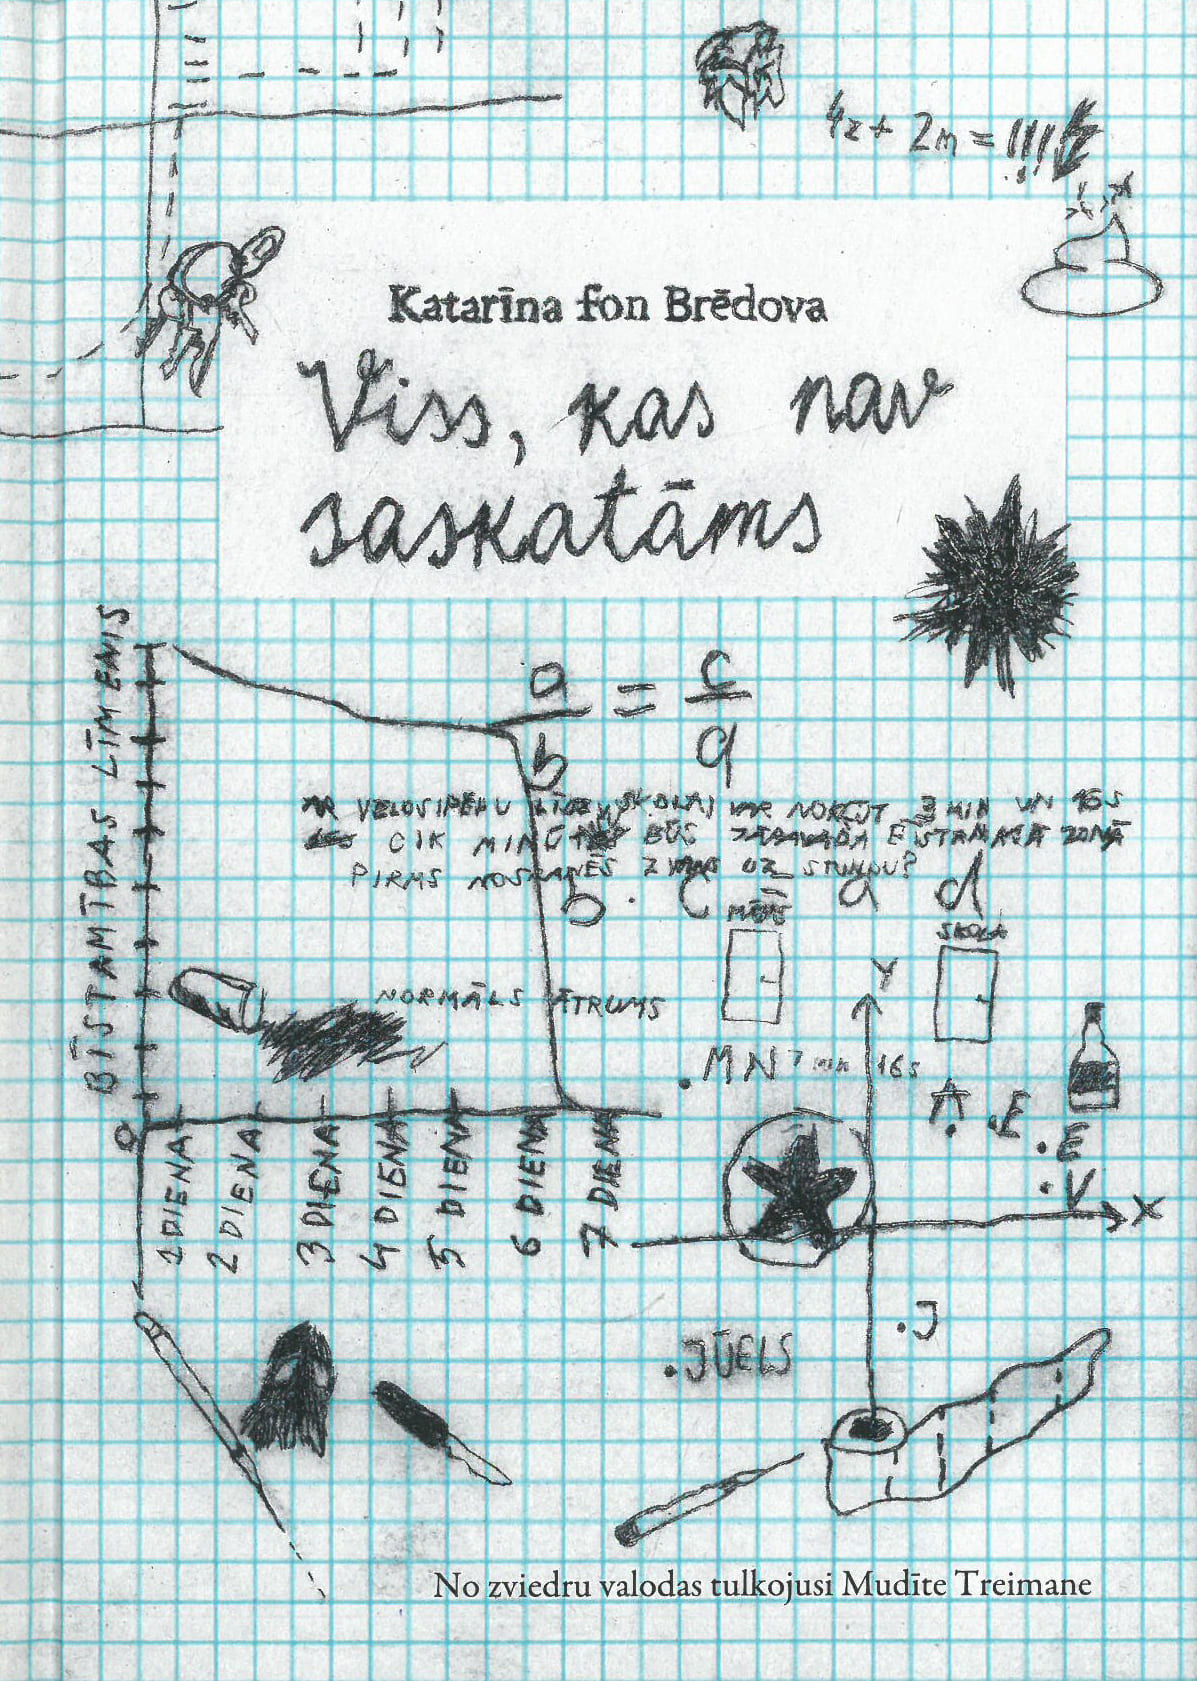 4z + 2m = !!!
Katarīna fon Brēdova
Viss, kas nav
saskatāms
BĪSTAMĪBAS LĪMENIS
a = c
b d
AR VELOSIPĒDU LĪDZ SKOLAI VAR NOKĻŪT 3 MIN UN 16S
CIK MINŪTES BŪS ZONĀ
PIRMS NOSKANĒS ZVANS UZ STUNDU?
b · c = a d
MĀJĀS
SKOLA
Y
NORMĀLS ĀTRUMS
MN 7 min 16s
A E
E
V
X
0
1 DIENA
2 DIENA
3 DIENA
4 DIENA
5 DIENA
6 DIENA
7 DIENA
J
JŪELS
No zviedru valodas tulkojusi Mudīte Treimane